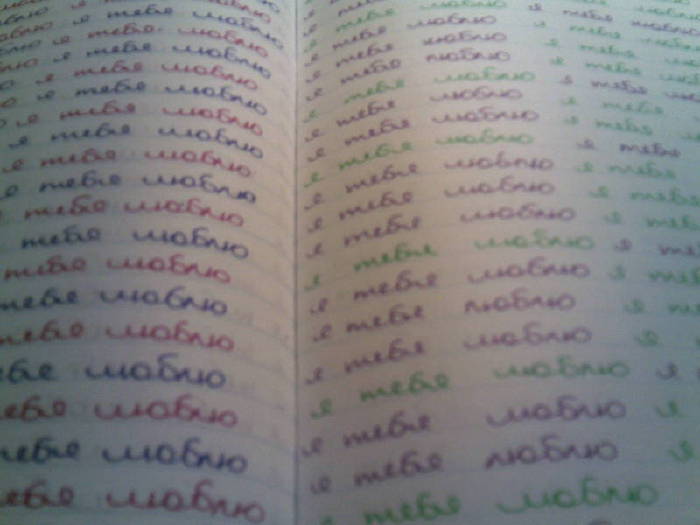 я тебя люблю
люблю я тебя люблю
я тебя люблю
я тебя люблю
я тебя люблю
я тебя люблю
я тебя люблю
я тебя люблю
я тебя люблю
я тебя люблю
тебя люблю
тебя люблю
тебя люблю
тебя люблю
тебя люблю
люблю
люблю
люблю
люблю
я тебя люблю я тебя люблю
я тебя люблю я тебя люблю
я тебя люблю я тебя люблю
я тебя люблю я тебя
я тебя люблю я тебя
я тебя люблю я тебя
я тебя люблю я тебя
я тебя люблю я тебя
я тебя люблю я тебя
я тебя люблю я тебя
я тебя люблю я тебя
я тебя люблю я
я тебя люблю я
я тебя люблю я
я тебя люблю я
я тебя люблю я
я тебя люблю я
я тебя люблю я
я тебя люблю